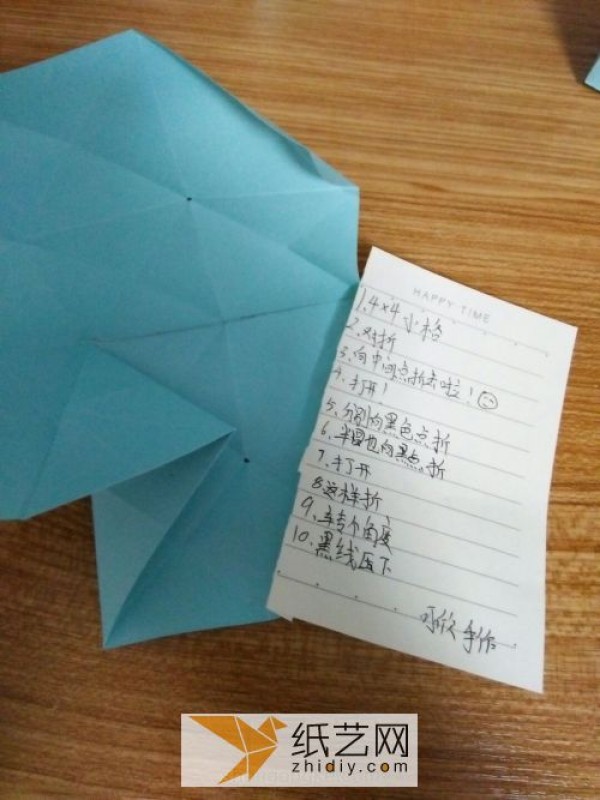 HAPPY TIME
1.4×4小格
2.对折
3.向中间点折去啦!
4.打开!
5.分别向黑色点折
6.半圆也向黑点折
7.打开
8.这样折
9.转个角度
10.黑线压下
手作
纸艺网
zhidiy.com